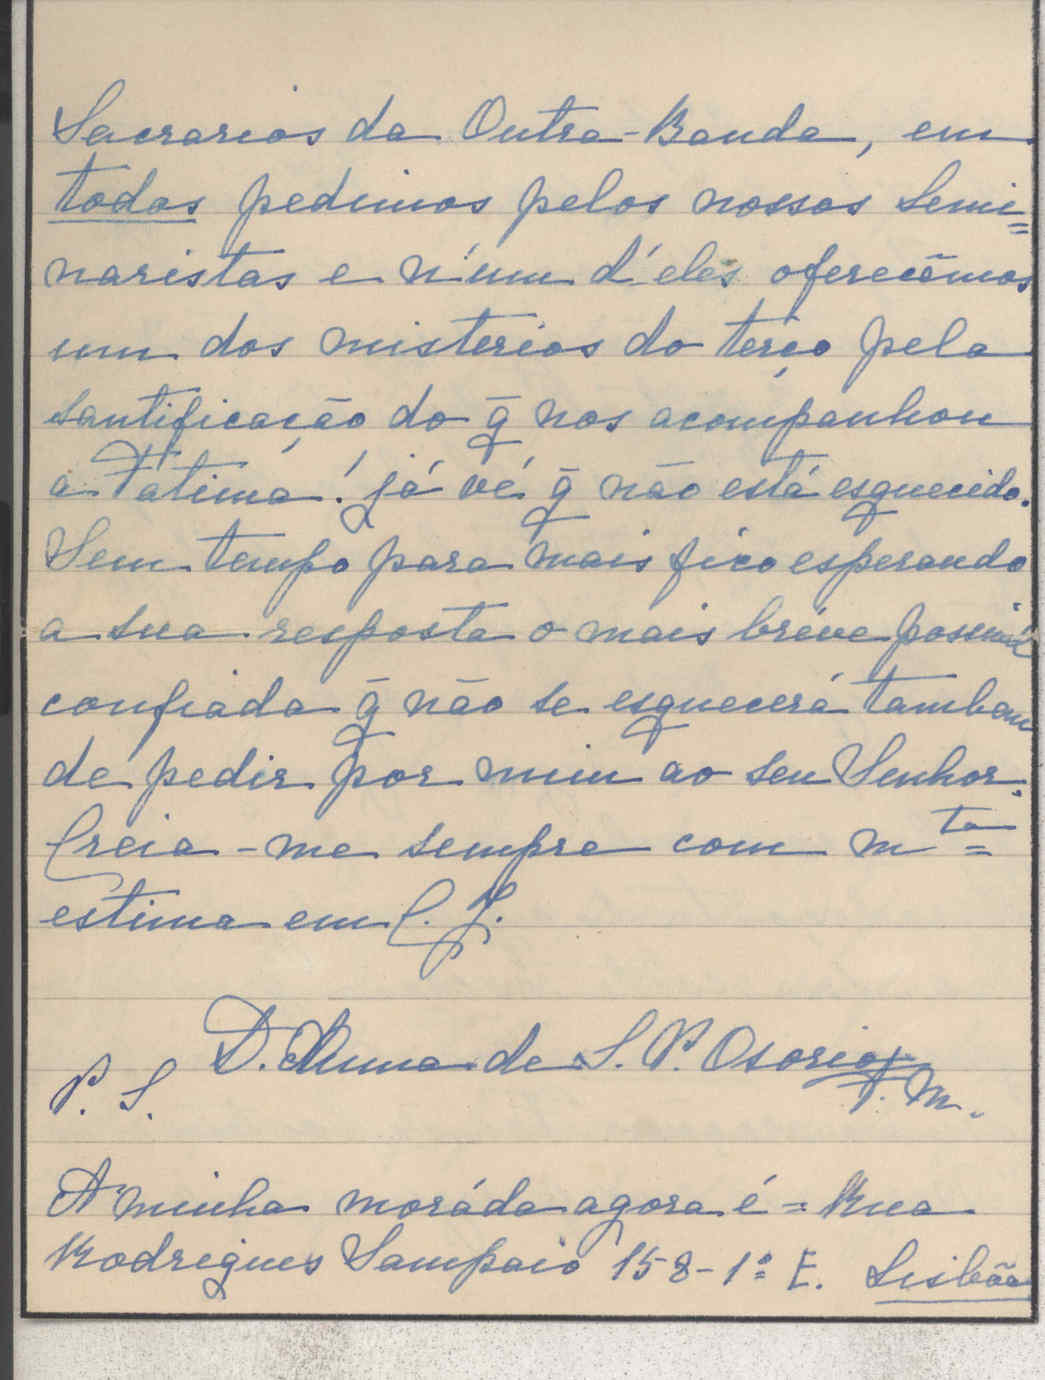 Sacrarios da Outra-Banda, em
todos pedimos pelos nossos Semi=
naristas e n'um d'eles oferecêmos
um dos misterios do terço pela
santificação do q̃ nos acompanhou
a Fátima! já vê q̃ não está esquecido.
Sem tempo para mais fico esperando
a sua resposta o mais bréve possivel
confiada q̃ não se esquecerá tambem
de pedir por mim ao seu Senhor.
Creia-me sempre com m.ta=
estima em C. J.
D. Anna de S. P. Osorio
T. M.
P. S.
A minha moráda agora é = Rua
Rodrigues Sampaio 158-1º E. Lisbôa